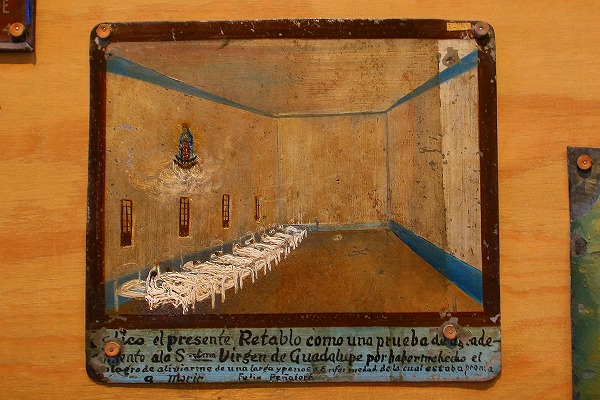 el presente Retablo como una prueba de
a la Sma Virgen de Guadalupe por habermehecho el
de aliviarme de una larga y penosa Enfermedad de la cual estaba
a Morir Felix Peñaloza